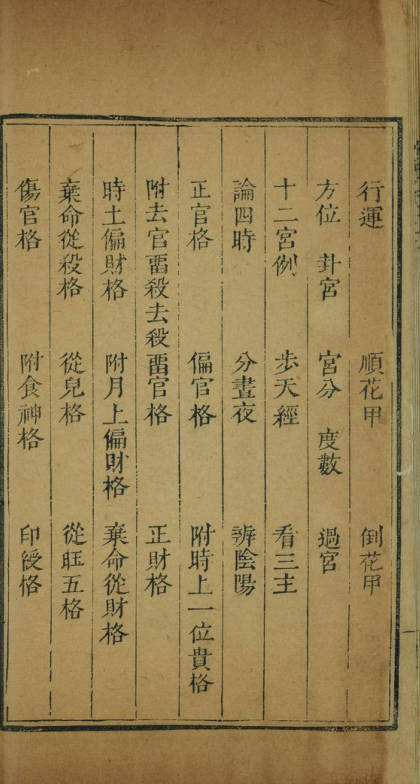 行運 順花甲 倒花甲
方位 卦宮 宮分 度數 過宮
十二宮例 步天經 看三主
論四時 分晝夜 辨陰陽
正官格 偏官格 附時上一位貴格
附去官畱殺去殺畱官格 正財格
時土偏財格 附月上偏財格 棄命從財格
棄命從殺格 從兒格 從旺五格
傷官格 附食神格 印綬格